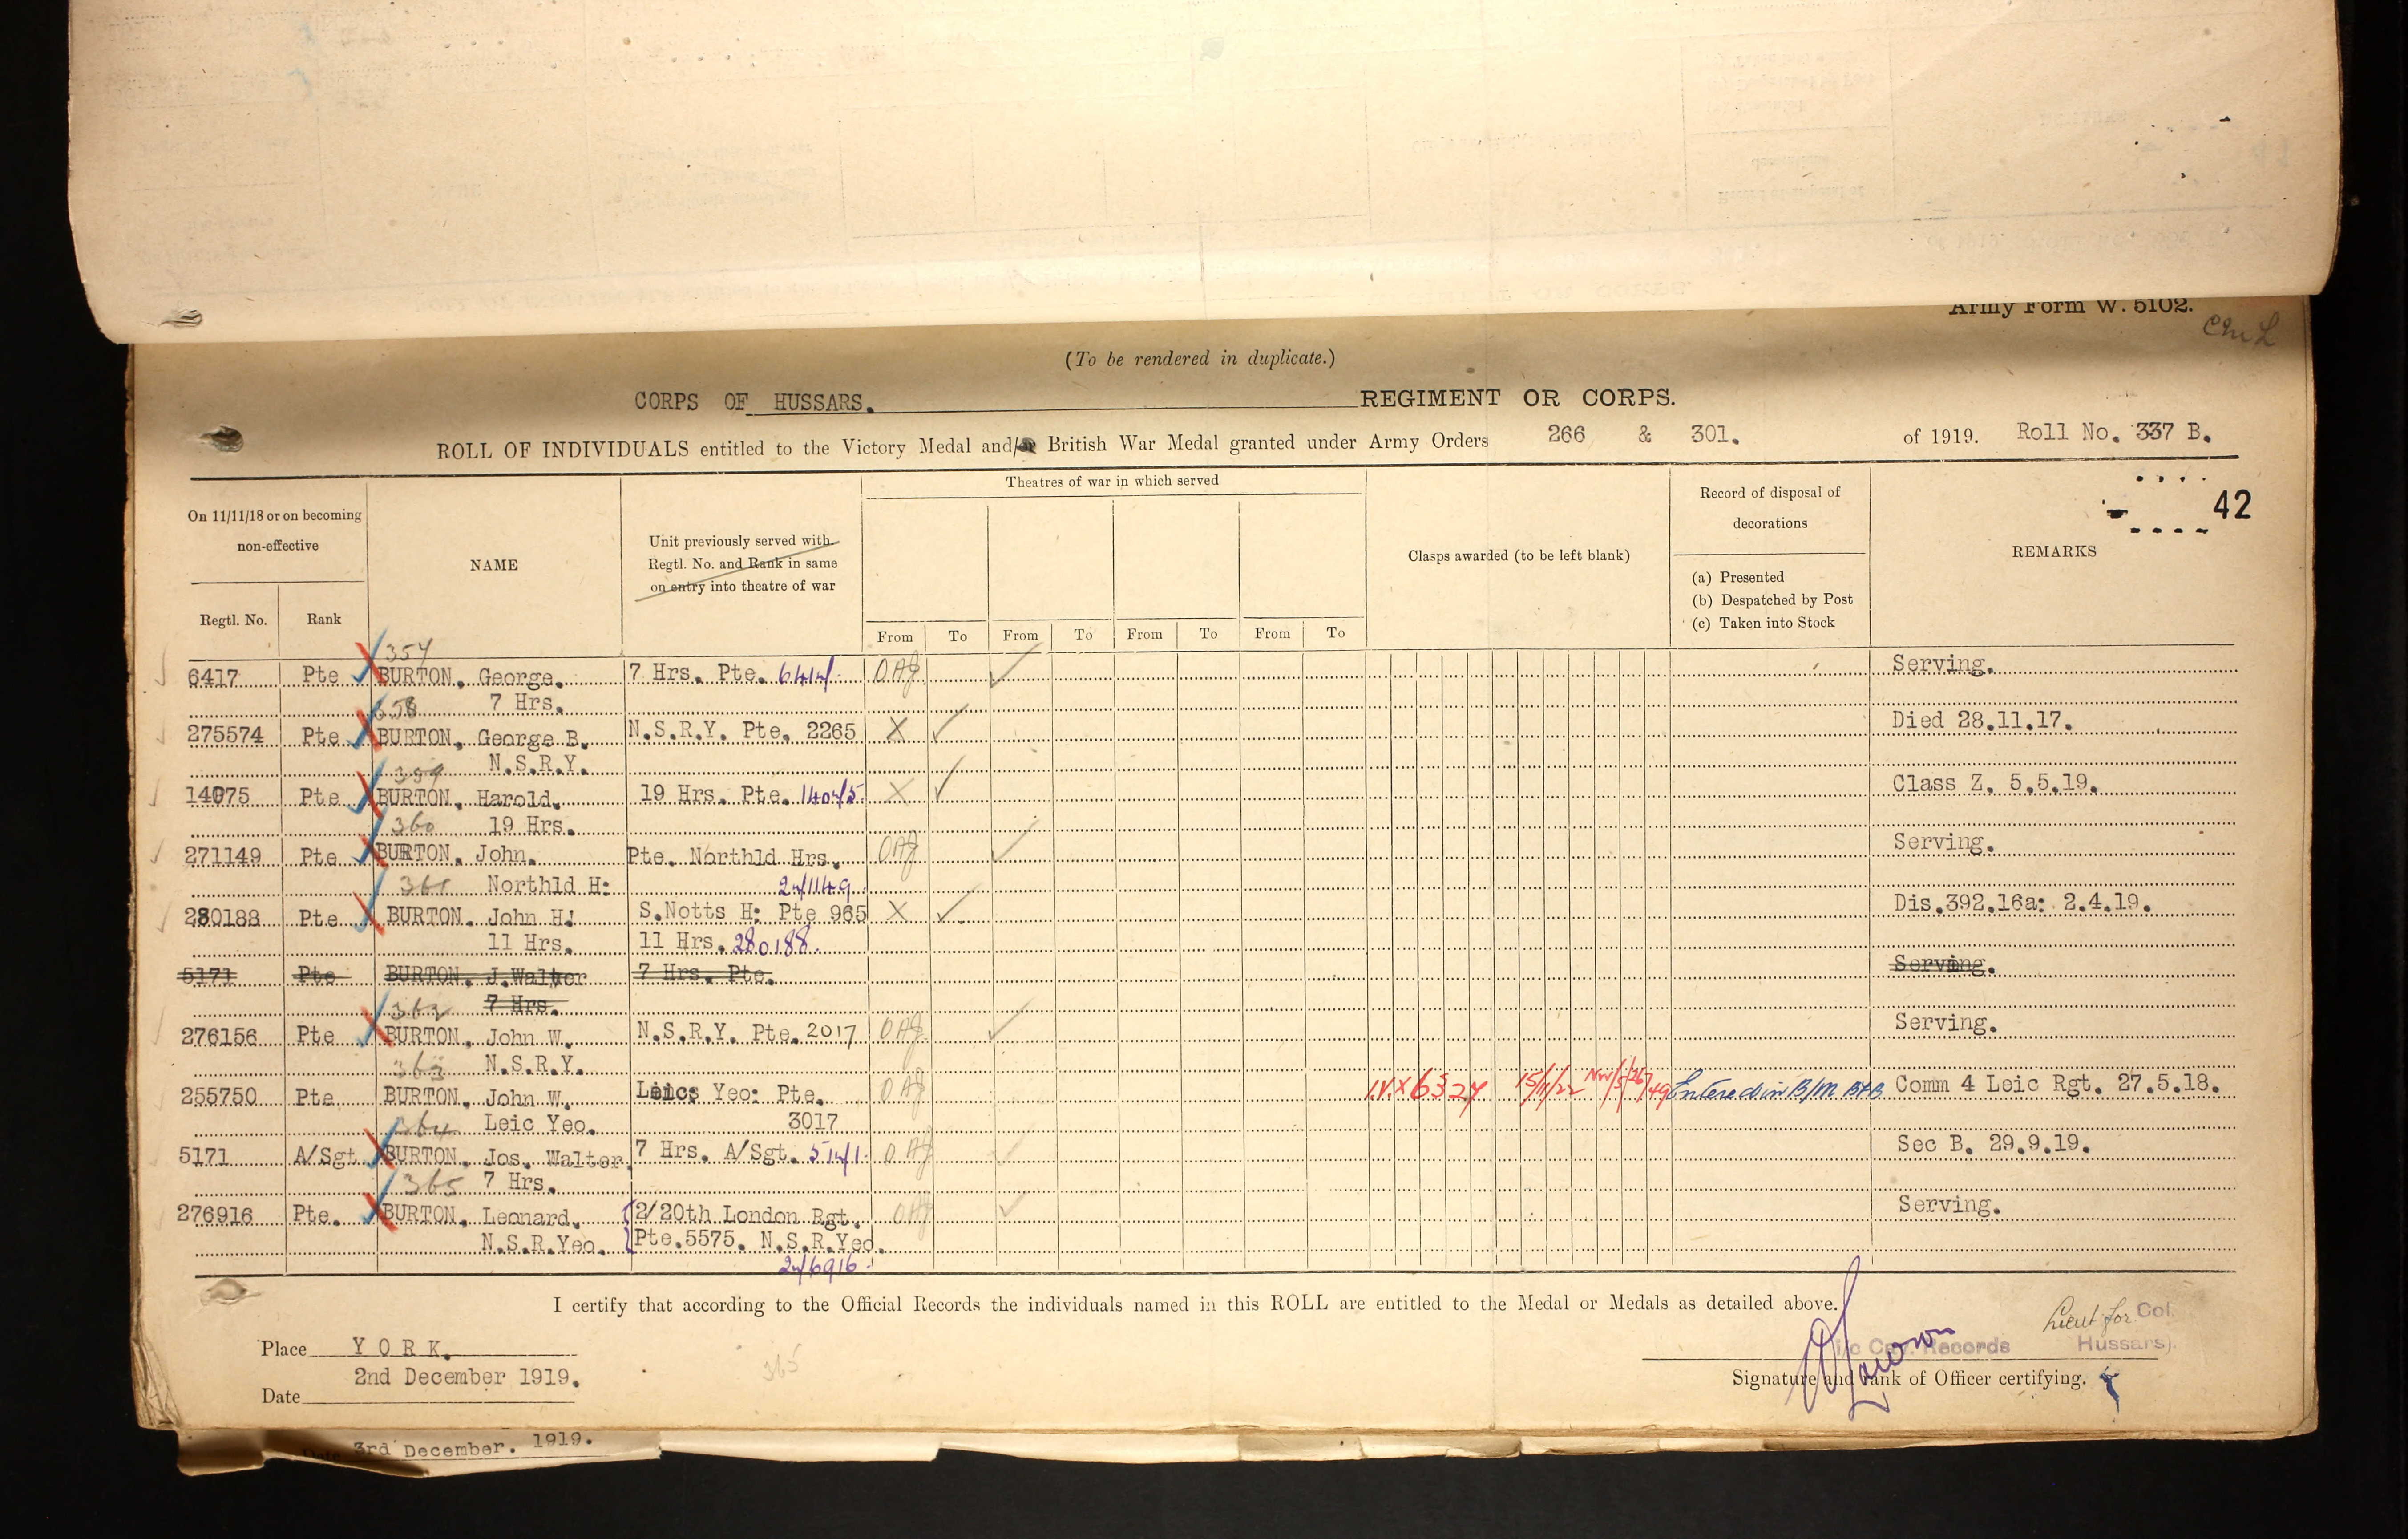 Army Form W. 5102.
(To be rendered in duplicate.)
CORPS OF HUSSARS. REGIMENT OR CORPS.
ROLL OF INDIVIDUALS entitled to the Victory Medal and/or British War Medal granted under Army Orders 266 & 301. of 1919. Roll No. 337 B.
42
On 11/11/18 or on becoming non-effective
Regtl. No.
Rank
NAME
Unit previously served with
Regtl. No. and Rank in same
on entry into theatre of war
Theatres of war in which served
From To From To From To From To
Clasps awarded (to be left blank)
Record of disposal of
decorations
(a) Presented
(b) Despatched by Post
(c) Taken into Stock
REMARKS
357
6417 Pte BURTON. George. 7 Hrs. Pte. 6417 Serving.
358 7 Hrs.
275574 Pte BURTON. George B. N.S.R.Y. Pte. 2265 X Died 28.11.17.
359 N.S.R.Y.
14075 Pte BURTON. Harold. 19 Hrs. Pte. 14075 X Class Z. 5.5.19.
360 19 Hrs.
271149 Pte BURTON. John. Pte. Northld Hrs. Serving.
361 Northld H: 271149
280188 Pte BURTON. John H. S.Notts H: Pte 965 X Dis.392.16a: 2.4.19.
11 Hrs. 11 Hrs. 280188.
5171 Pte BURTON. J.Walter 7 Hrs. Pte. Serving.
362 7 Hrs.
276156 Pte BURTON. John W. N.S.R.Y. Pte. 2017 Serving.
363 N.S.R.Y.
255750 Pte BURTON. John W. Leics Yeo: Pte. 15/11/22 Entered in B/M Comm 4 Leic Rgt. 27.5.18.
364 Leic Yeo. 3017
5171 A/Sgt BURTON. Jos. Walter. 7 Hrs. A/Sgt. 5171 Sec B. 29.9.19.
365 7 Hrs.
276916 Pte. BURTON. Leonard. 2/20th London Rgt. Serving.
N.S.R.Yeo. Pte.5575. N.S.R.Yeo.
276916
I certify that according to the Official Records the individuals named in this ROLL are entitled to the Medal or Medals as detailed above.
Lieut for Col.
Place YORK. i/c Cav. Records Hussars).
2nd December 1919.
365
Date
Signature and Rank of Officer certifying.
Date 3rd December. 1919.